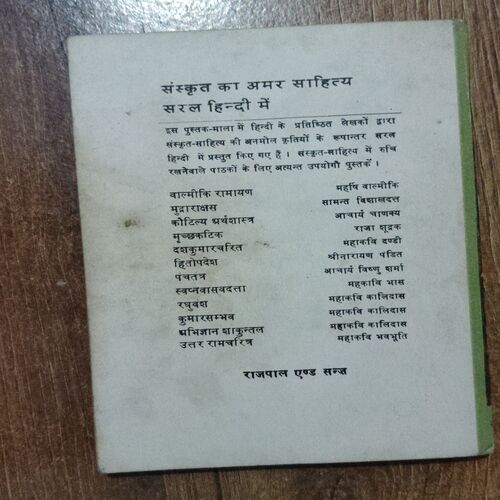 संस्कृत का अमर साहित्य
सरल हिन्दी में
इस पुस्तक-माला में हिन्दी के प्रतिष्ठित लेखकों द्वारा
संस्कृत-साहित्य की अनमोल कृतियों के रूपान्तर सरल
हिन्दी में प्रस्तुत किए गए हैं। संस्कृत-साहित्य में रुचि
रखनेवाले पाठकों के लिए अत्यन्त उपयोगी पुस्तकें।
वाल्मीकि रामायण महर्षि वाल्मीकि
मुद्राराक्षस सामन्त विशाखदत्त
कौटिल्य अर्थशास्त्र आचार्य चाणक्य
मृच्छकटिक राजा शूद्रक
दशकुमारचरित महाकवि दण्डी
हितोपदेश श्रीनारायण पंडित
पंचतंत्र आचार्य विष्णु शर्मा
स्वप्नवासवदत्ता महाकवि भास
रघुवंश महाकवि कालिदास
कुमारसम्भव महाकवि कालिदास
अभिज्ञान शाकुन्तल महाकवि कालिदास
उत्तर रामचरित्र महाकवि भवभूति
राजपाल एण्ड सन्ज़